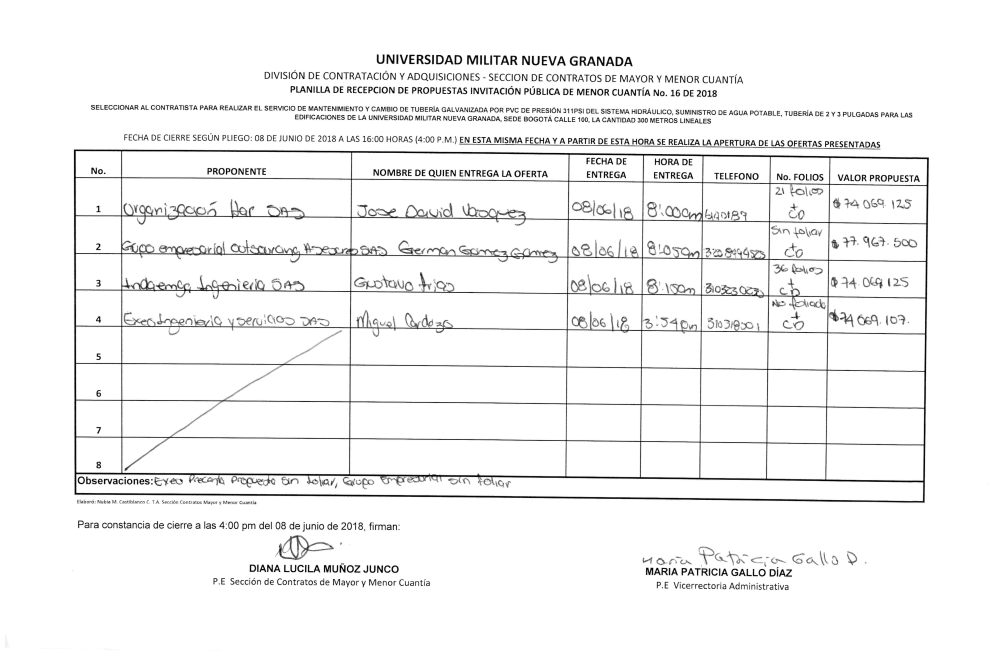 UNIVERSIDAD MILITAR NUEVA GRANADA
DIVISIÓN DE CONTRATACIÓN Y ADQUISICIONES - SECCION DE CONTRATOS DE MAYOR Y MENOR CUANTÍA
PLANILLA DE RECEPCION DE PROPUESTAS INVITACIÓN PÚBLICA DE MENOR CUANTÍA No. 16 DE 2018
SELECCIONAR AL CONTRATISTA PARA REALIZAR EL SERVICIO DE MANTENIMIENTO Y CAMBIO DE TUBERÍA GALVANIZADA POR PVC DE PRESIÓN 311PSI DEL SISTEMA HIDRÁULICO, SUMINISTRO DE AGUA POTABLE, TUBERÍA DE 2 Y 3 PULGADAS PARA LAS
EDIFICACIONES DE LA UNIVERSIDAD MILITAR NUEVA GRANADA, SEDE BOGOTÁ CALLE 100, LA CANTIDAD 300 METROS LINEALES
FECHA DE CIERRE SEGÚN PLIEGO: 08 DE JUNIO DE 2018 A LAS 16:00 HORAS (4:00 P.M.) EN ESTA MISMA FECHA Y A PARTIR DE ESTA HORA SE REALIZA LA APERTURA DE LAS OFERTAS PRESENTADAS
No. PROPONENTE NOMBRE DE QUIEN ENTREGA LA OFERTA FECHA DE ENTREGA HORA DE ENTREGA TELEFONO No. FOLIOS VALOR PROPUESTA
1 Organización Har SAS Jose David Vasquez 08/06/18 8:00am 21 folios + CD $74 069.125
2 Grupo empresarial outsourcing Asesores SAS German Gomez Gomez 08/06/18 8:05am Sin foliar + CD $77.967.500
3 Ingenieria SAS Gustavo Arias 08/06/18 8:15am 36 folios + CD $74.069.125
4 Exeo Ingenieria y servicios SAS Miguel Cardozo 08/06/18 3:54pm No foliado + CD $74 069.107.
5
6
7
8
Observaciones: Exeo Presenta Propuesta sin foliar, Grupo Empresarial sin foliar
Elaboró: Nubia M. Castiblanco C. T.A. Sección Contratos Mayor y Menor Cuantía
Para constancia de cierre a las 4:00 pm del 08 de junio de 2018, firman:
Maria Patricia Gallo D.
DIANA LUCILA MUÑOZ JUNCO MARIA PATRICIA GALLO DÍAZ
P.E Sección de Contratos de Mayor y Menor Cuantía P.E Vicerrectoria Administrativa